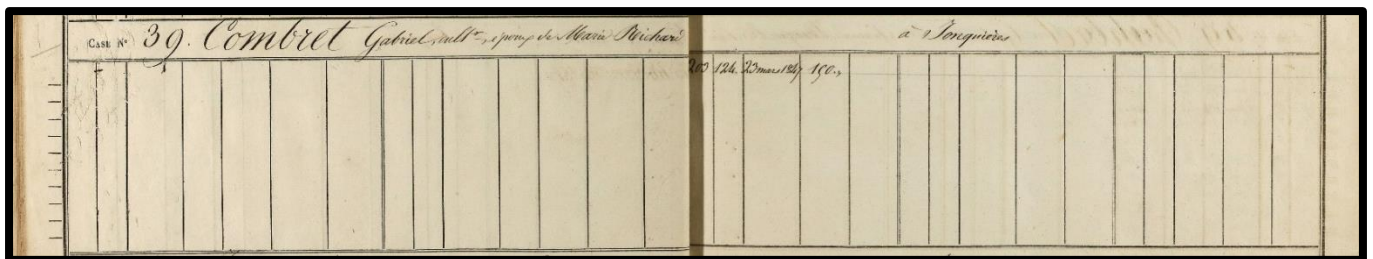 CASE N° 39. Combret Gabriel, cult^r, époux de Marie Richard à Jonquières
203 124. 23 mars 1847 150.,